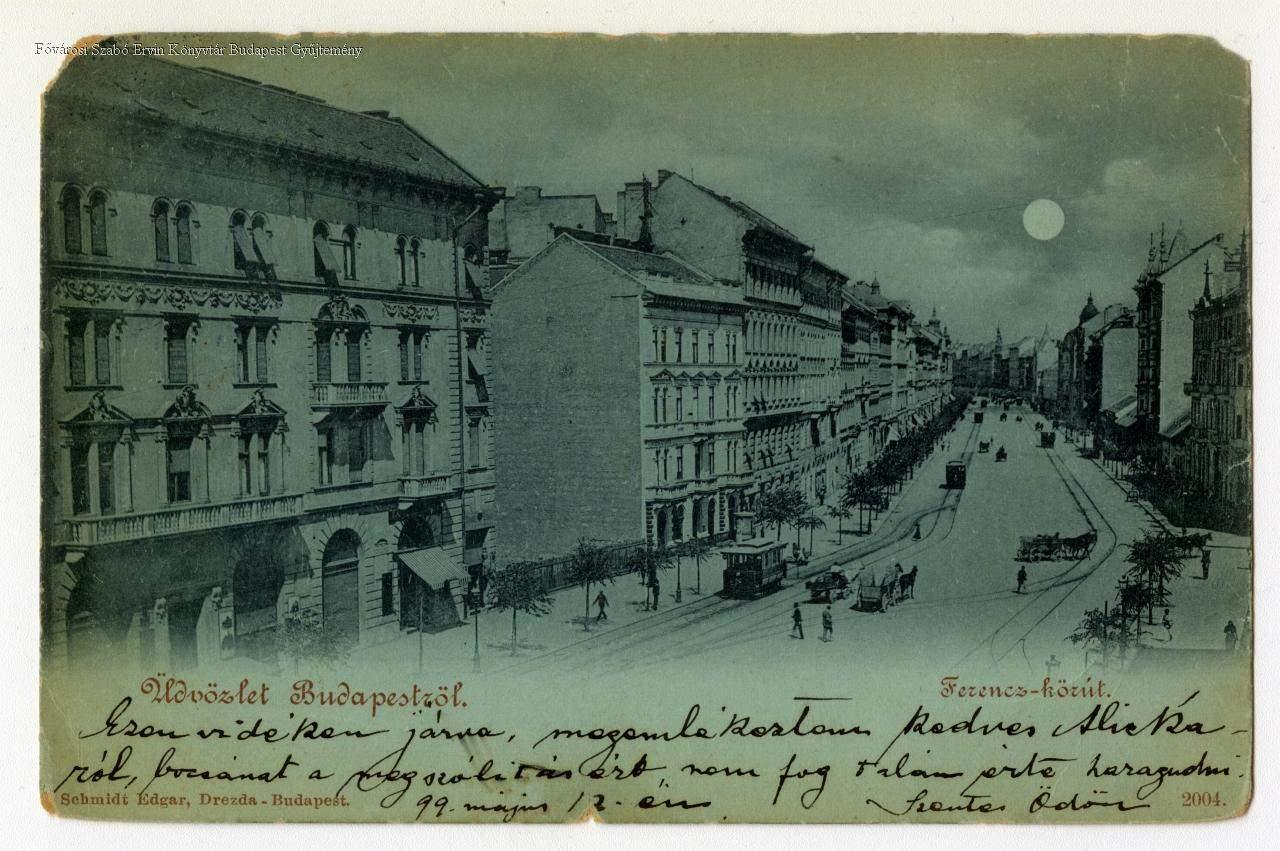 Fővárosi Szabó Ervin Könyvtár Budapest Gyűjtemény
Üdvözlet Budapestről.
Ferencz-körút.
Ezen vidéken járva, megemlékeztem kedves Alická-
ról, bocsánat a megszólitásért, nem fog talán érte haragudni.
Schmidt Edgar, Drezda-Budapest.
99. május 12-én
Szentes Ödön
2004.